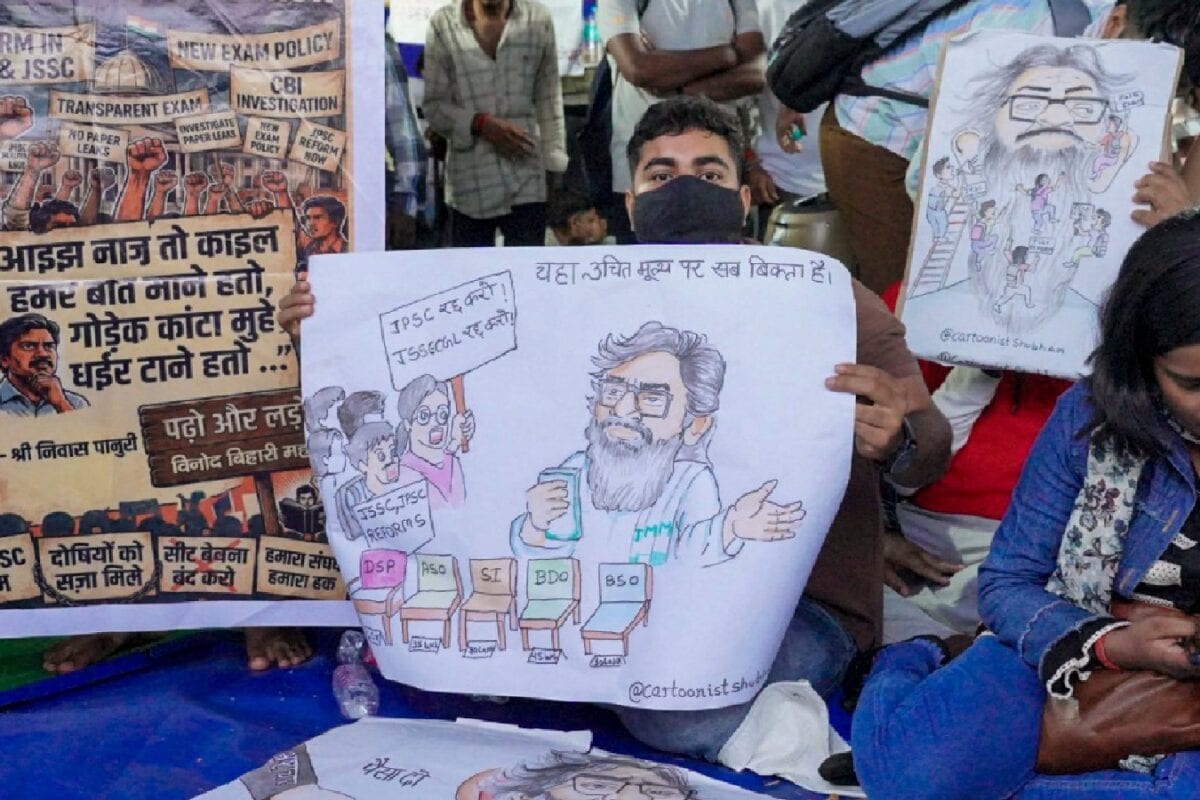 RM IN
& JSSC
NEW EXAM POLICY
TRANSPARENT EXAM
CBI
INVESTIGATION
NO PAPER
LEAKS
INVESTIGATE
PAPER LEAKS
NEW
EXAM
POLICY
JPSC
REFORM
NOW
आइझ नाज़ तो काइल
हमर बात माने हतो,
गोड़ेक कांटा मुहे
धईर टाने हतो ..."
- श्री निवास पानुरी
पढ़ो और लड़
विनोद बिहारी
SC
M
दोषियों को
सज़ा मिले
सीट बेचना
बंद करो
हमारा संघर्ष
हमारा हक
यहा उचित मूल्य पर सब बिकता है।
JPSC रद्द करो!
JSSCCGL रद्द करो!
JSSC, JPSC
REFORMS
JMM
DSP
ASO
SI
BDO
BSO
@cartoonistshubh
@cartoonistshubham
पैसा दो